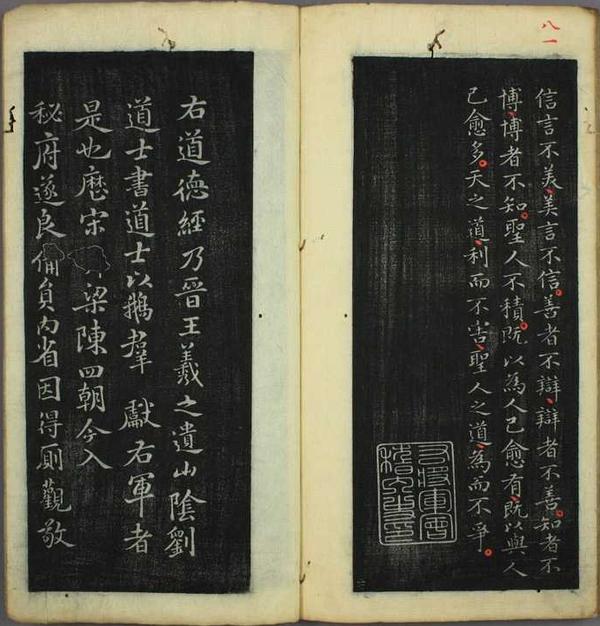 八一
信言不美美言不信善者不辯辯者不善知者不
博博者不知聖人不積既以為人已愈有既以與人
已愈多天之道利而不害聖人之道為而不爭
右將軍會
稽內史印
右道德經乃晉王羲之遺山陰劉
道士書道士以鵝羣獻右軍者
是也歷宋梁陳四朝今入
秘府遂良備負內省因得厠觀敬